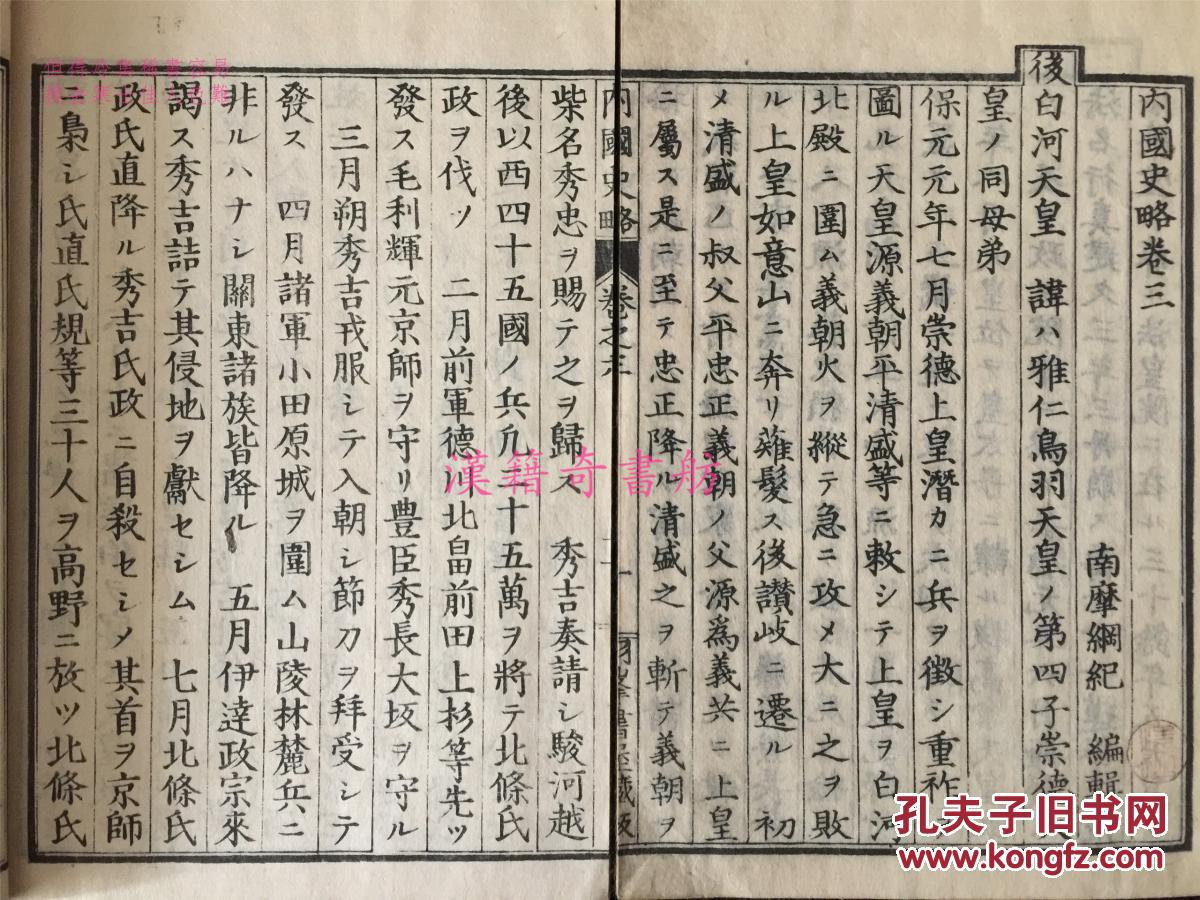 內國史略卷三
南摩綱紀 編輯
後白河天皇 諱ハ雅仁鳥羽天皇ノ第四子崇德
皇ノ同母弟
保元元年七月崇德上皇潛カニ兵ヲ徵シ重祚
圖ル天皇源義朝平清盛等ニ敕シテ上皇ヲ白河
北殿ニ圍ム義朝火ヲ縱テ急ニ攻メ大ニ之ヲ敗
ル上皇如意山ニ奔リ薙髮ス後讚岐ニ遷ル 初
メ清盛ノ叔父平忠正義朝ノ父源爲義共ニ上皇
ニ屬ス是ニ至テ忠正降ル清盛之ヲ斬テ義朝ヲ
內國史略 卷之三 一
柴名秀忠ヲ賜テ之ヲ歸ス 秀吉奏請シ駿河越
後以西四十五國ノ兵凡三十五萬ヲ將テ北條氏
政ヲ伐ツ 二月前軍德川北畠前田上杉等先ツ
發ス毛利輝元京師ヲ守リ豊臣秀長大坂ヲ守ル
三月朔秀吉戎服シテ入朝シ節刀ヲ拜受シテ
發ス 四月諸軍小田原城ヲ圍ム山陵林麓兵ニ
非ルハナシ關東諸族皆降ル 五月伊達政宗來
謁ス秀吉詰テ其侵地ヲ獻セシム 七月北條氏
政氏直降ル秀吉氏政ニ自殺セシメ其首ヲ京師
ニ梟シ氏直氏規等三十人ヲ高野ニ放ツ北條氏
漢籍奇書舫
孔夫子旧书网
www.kongfz.com